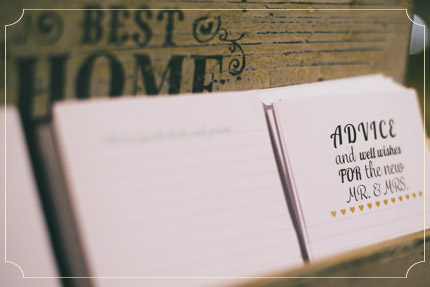 BEST
HOME
ADVICE
and well wishes
FOR the new
MR. & MRS.